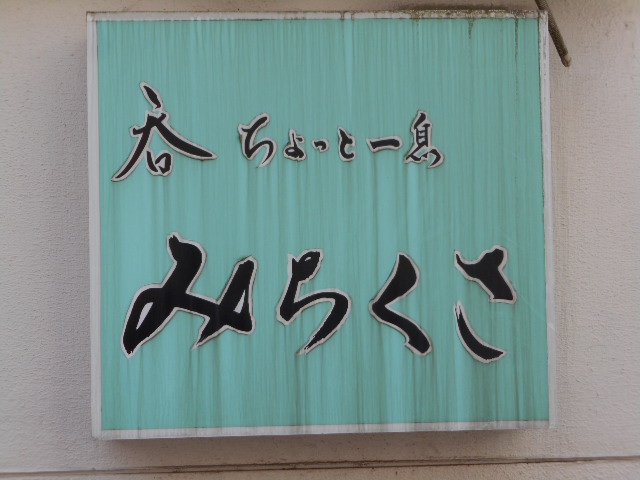 呑 ちょっと一息
みちくさ